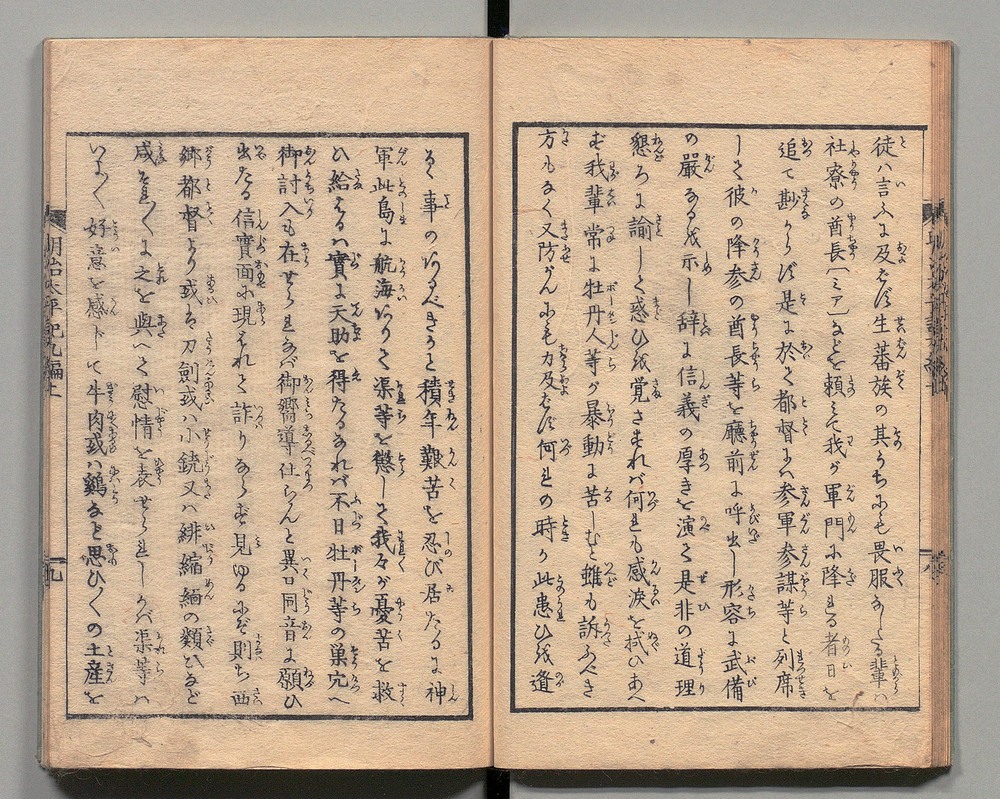 徒ハ言ふに及ばず生蕃族の其うちにも畏服なしたる輩ハ
社寮の酋長〔ミア〕などを頼ミて我が軍門に降る者日を
追て尠からず是に於て都督にハ参軍参謀等と列席
して彼の降参の酋長等を廳前に呼出し形容に武備
の嚴なるを示し辞に信義の厚きを演て是非の道理
懇ろに諭して惑ひを覚さすれバ何れも感涙を拭ひあへ
ず我輩常に牡丹人等が暴動に苦しむと雖も訴ふべき
方もなく又防がんにも力及ばず何れの時か此患ひを遁
るゝ事のあるべきかと積年艱苦を忍び居たるに神
軍此島に航海ありて渠等を懲して我々が憂苦を救
ひ給はるハ實に天助を得たるなれバ不日牡丹等の巣穴へ
御討入も在せられなバ御嚮導仕らんと異口同音に願ひ
出たる信實面に現はれて詐りならず見ゆるにぞ則ち西
郷都督より或は刀劍或ハ小銃又ハ緋縮緬の類ひなど
咸それ〳〵に之を與へて慰情を表せられしかバ渠等ハ
いよ〳〵好意を感じて牛肉或ハ鷄など思ひ〳〵の土産を
明治太平記九編上
九